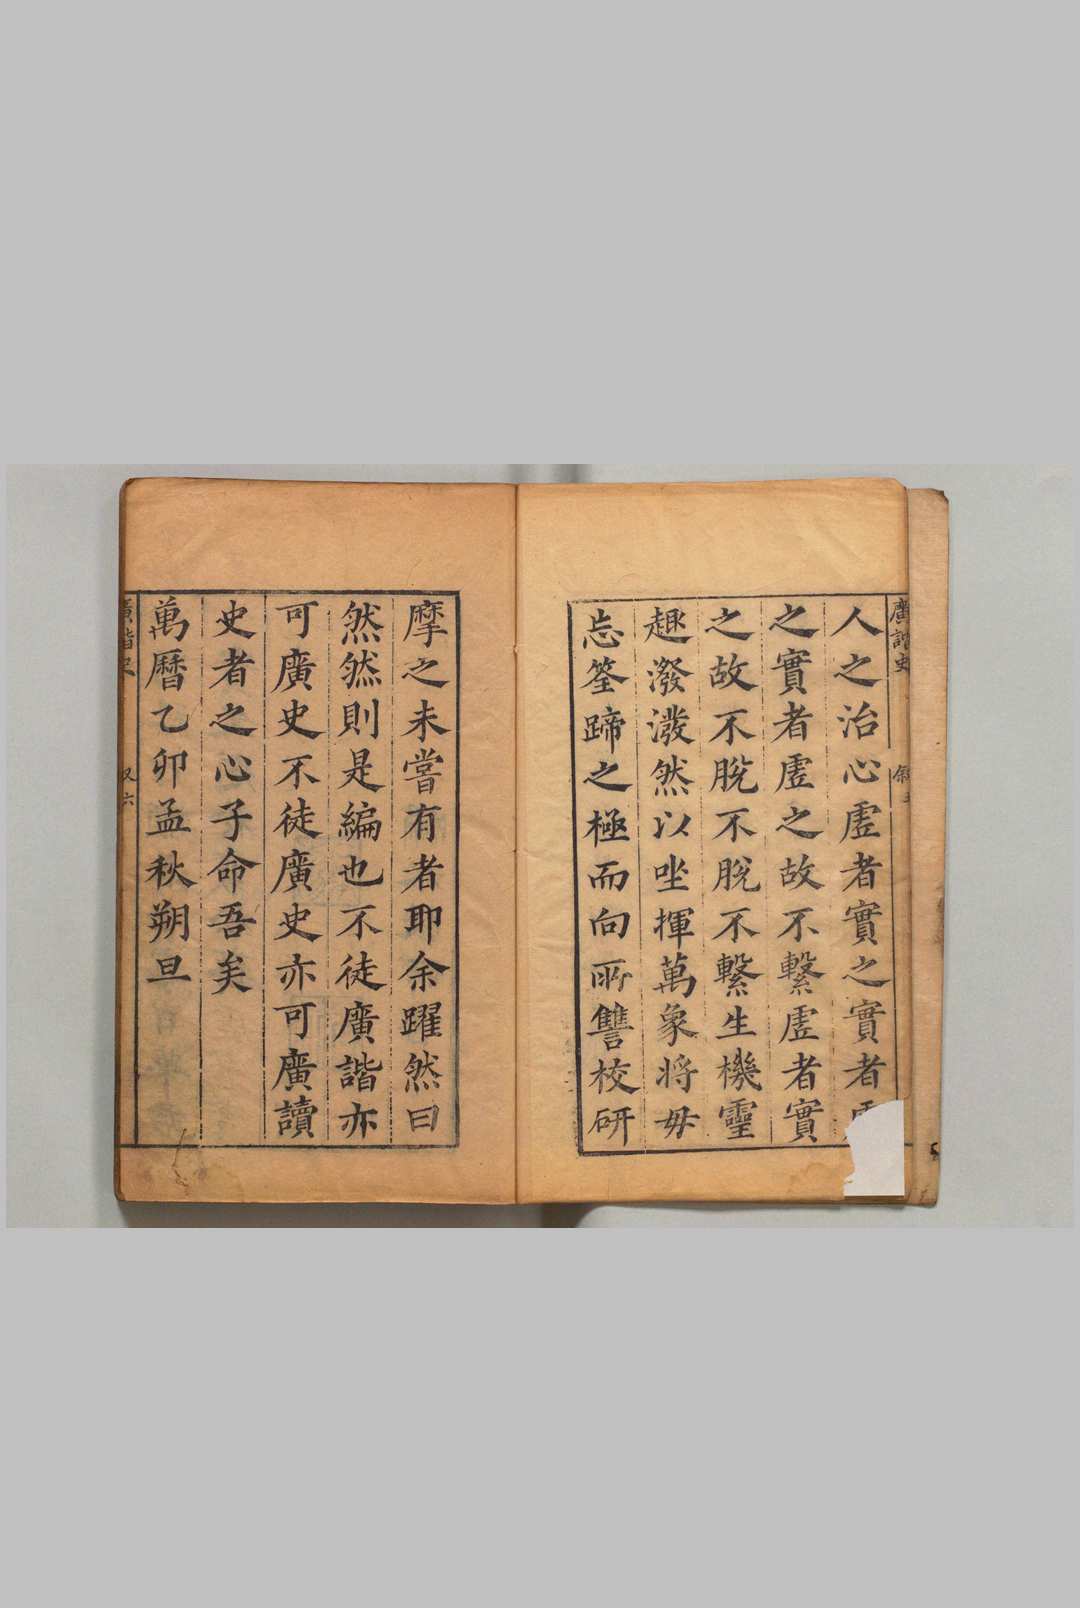 廣諧史
人之治心虗者實之實者
之實者虗之故不繫虗者實
之故不脫不脫不繫生機靈
趣潑潑然以㘴揮萬象將毋
忘筌蹄之極而向所讐校硏
摩之未嘗有者耶余躍然曰
然然則是編也不徒廣諧亦
可廣史不徒廣史亦可廣讀
史者之心子命吾矣
萬曆乙卯孟秋朔旦
廣諧史
又六